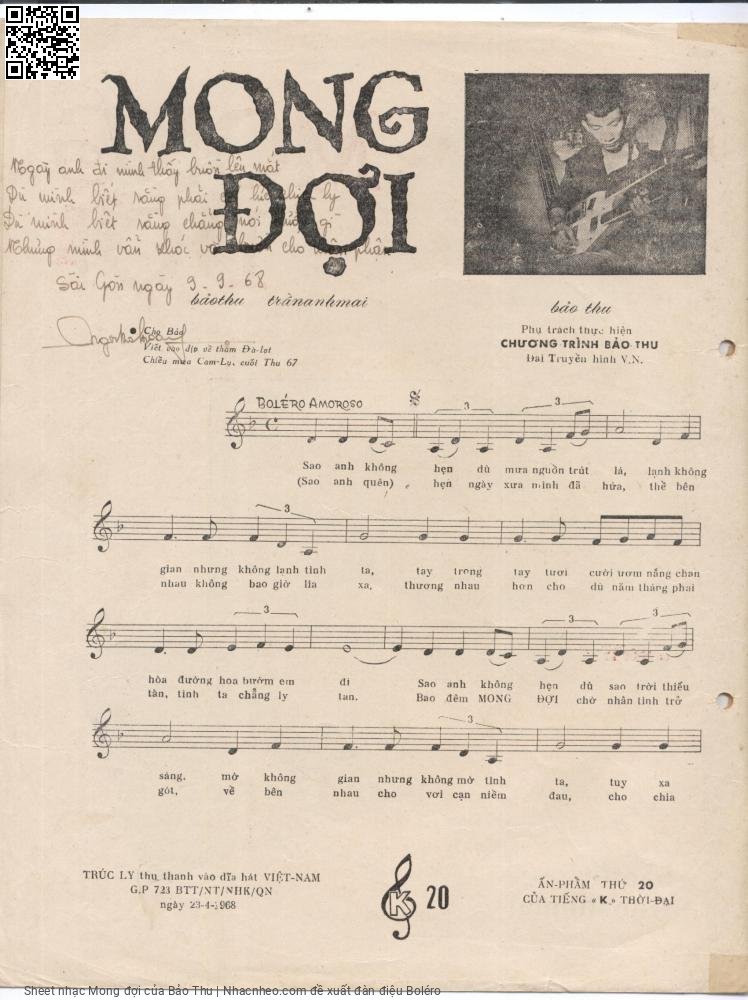 MONG
ĐỢI
Ngày anh đi mình thấy buồn lên mắt
Dù mình biết rằng phải ly
Dù mình biết rằng chẳng nói gì
Nhưng mình vẫn khóc cho thân phận
Sài Gòn ngày 9.9.68
bảothu trầnanhmai
Cho Bảo
Viết vào dịp về thăm Đà-lạt
Chiều mưa Cam-Ly, cuối Thu 67
bảo thu
Phụ trách thực hiện
CHƯƠNG TRÌNH BẢO THU
Đài Truyền hình V.N.
BOLÉRO AMOROSO
3 3
Sao anh không hẹn dù mưa nguồn trút lá, lạnh không
(Sao anh quên) hẹn ngày xưa mình đã hứa, thề bên
3
gian nhưng không lạnh tình ta, tay trong tay tươi cười ươm nắng chan
nhau không bao giờ lìa xa, thương nhau hơn cho dù năm tháng phai
3 3 3
hòa đường hoa bướm em đi Sao anh không hẹn dù sao trời thiếu
tàn, tình ta chẳng ly tan. Bao đêm MONG ĐỢI chờ nhân tình trở
3
sáng, mờ không gian nhưng không mờ tình ta, tuy xa
gót, về bên nhau cho vơi cạn niềm đau, cho chia
TRÚC LY thu thanh vào dĩa hát VIỆT-NAM
G.P 723 BTT/NT/NHK/QN
ngày 23-4-1968
K 20
ẤN-PHẨM THỨ 20
CỦA TIẾNG «K» THỜI-ĐẠI
Sheet nhạc Mong đợi của Bảo Thu | Nhacnheo.com đề xuất đàn điệu Boléro